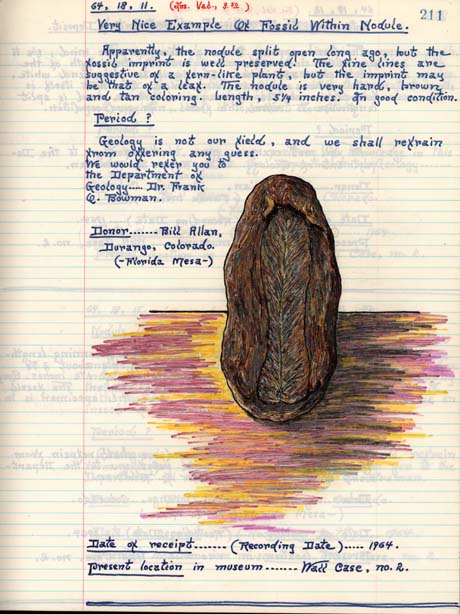 64. 18. 11. (Am. Val., 2.50)
211
Very Nice Example Of Fossil Within Nodule.
Apparently, the nodule split open long ago, but the
fossil imprint is well preserved! The fine lines are
suggestive of a fern-like plant, but the imprint may
be that of a leaf. The nodule is very hard, brown
and tan coloring. Length, 5¼ inches. In good condition.
Period ?
Geology is not our field, and we shall refrain
from offering any guess.
We would refer you to
the Department of
Geology.... Dr. Frank
O. Bowman.
Donor ------- Bill Allan,
Durango, Colorado.
(-Florida Mesa-)
Date of receipt ....... (Recording Date) ..... 1964.
Present location in museum ------- Wall Case, no. 2.